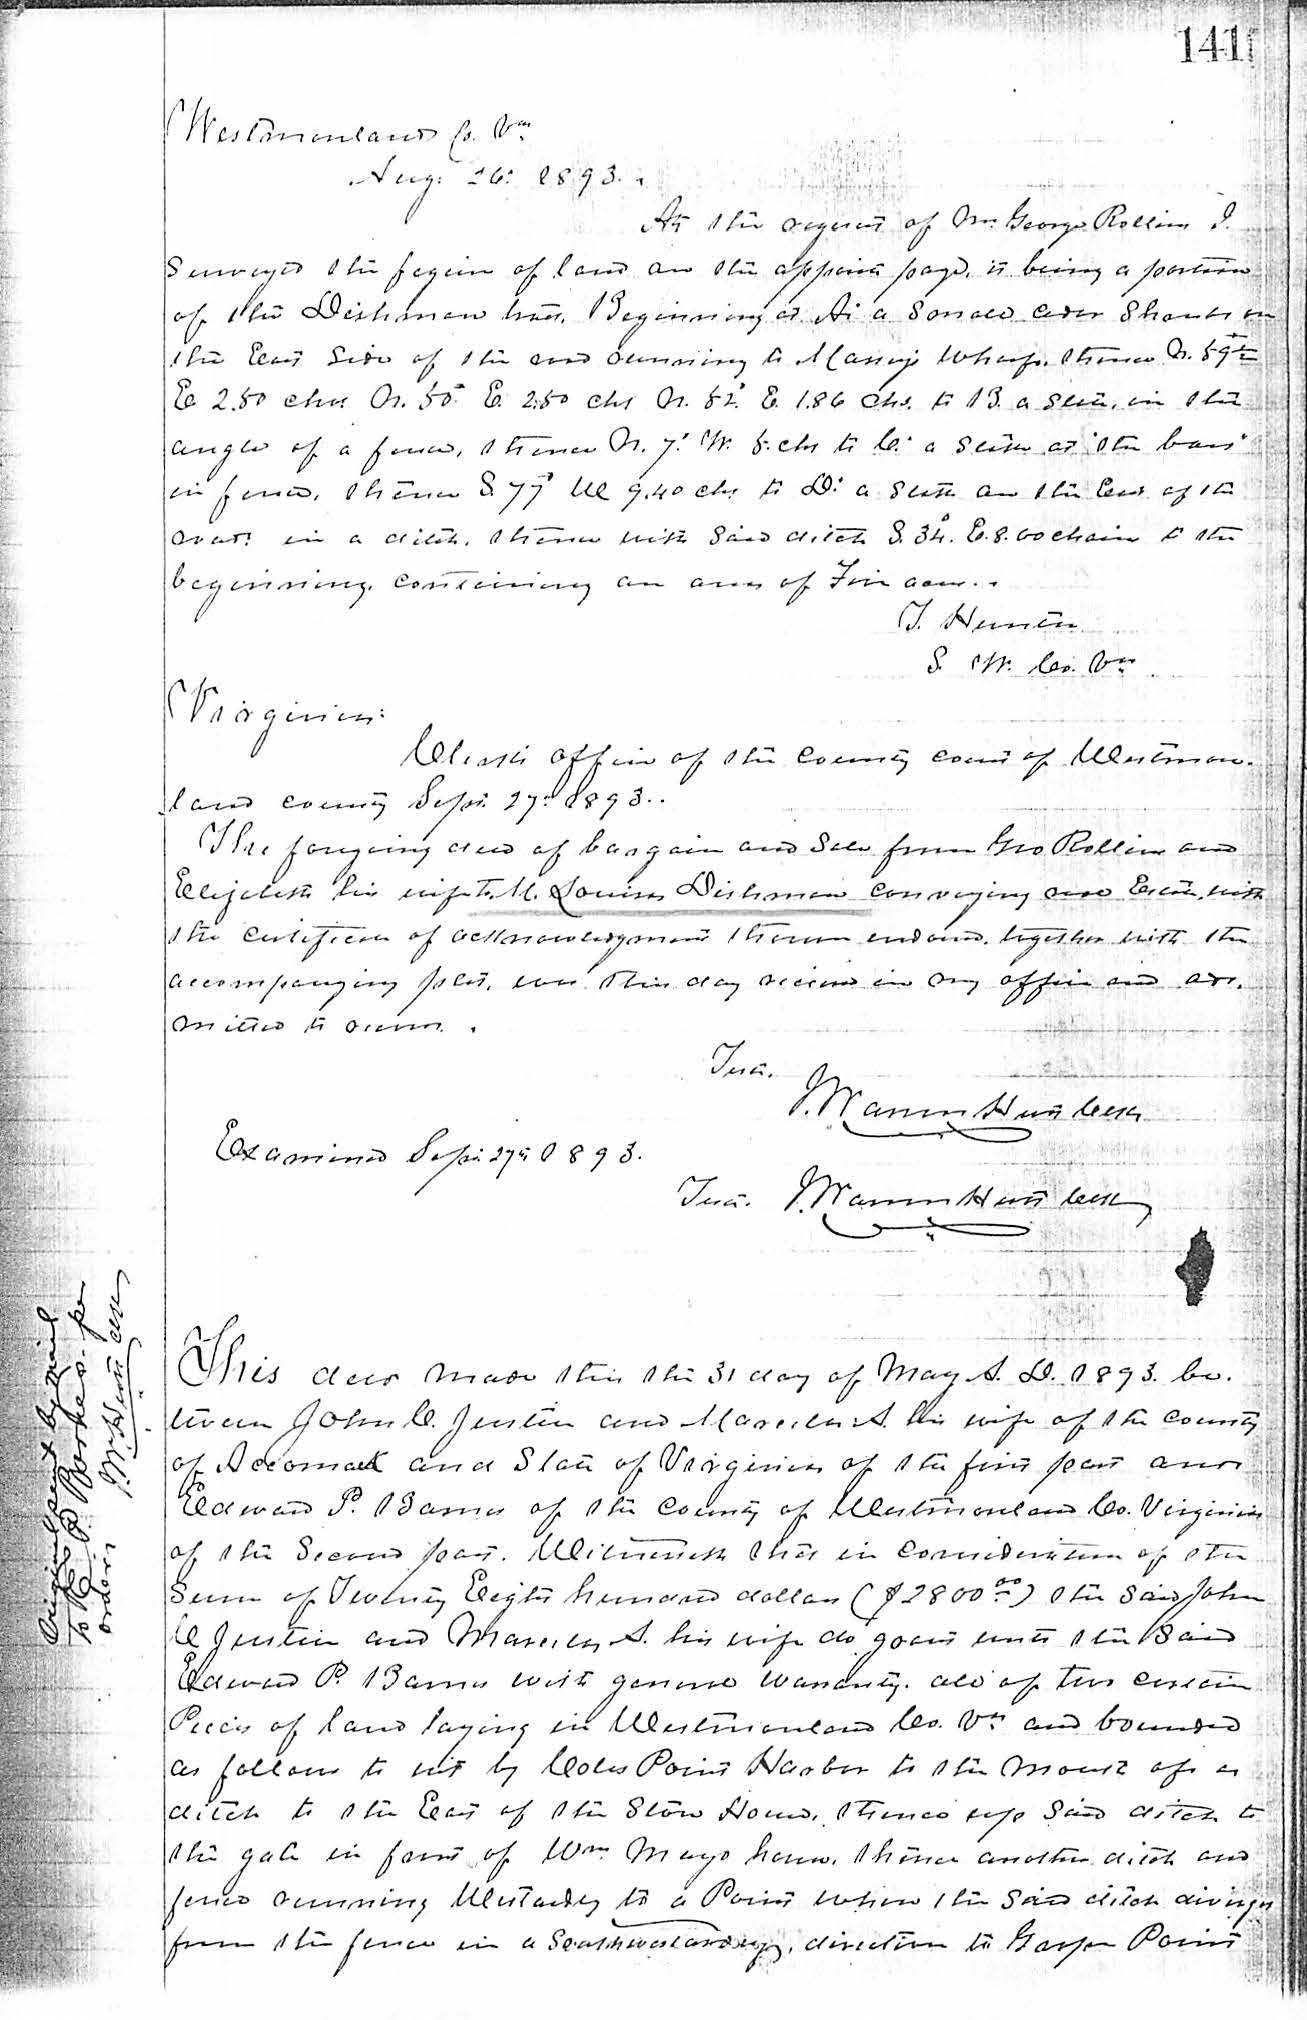 141
Westmoreland Co. Va
Aug. 26. 1893.
At the request of Mr. George Rollins I
Surveyed the figure of land on the opposite page, it being a portion
of the Dishman tract. Beginning at A. a small cedar Shrub on
the East side of the road running to Masseys Wharf, thence N. 59°
E 2.50 chs N. 50° E. 2.50 chs N. 52° E. 1.86 chs. to B. a stake, in the
angle of a fence, thence N. 7° W. 5. chs to C. a stake at "the bars"
in fence, thence S. 77° W 9.40 chs to D. a stake on the East of the
road in a ditch, thence with said ditch S. 34°. E. 8.00 chains to the
beginning, containing an area of Five acres.
S. W. Co. Va
Virginia:
Clerks office of the County court of Westmore-
land county Sept. 27th 1893.
The foregoing deed of bargain and sale from Geo Rollins and
Elizabeth his wife to M. Louisa Dishman conveying real Estate, with
the certificate of acknowledgment thereon endorsed, together with the
accompanying plat, was this day received in my office and ad-
mitted to record.
Teste.
J. Warren Hutt Clerk
Examined Sept. 27th 1893.
Teste. J. Warren Hutt Clerk
Original sent by mail
to E. P. Barnes per
order
J. W. Hutt Clk
This deed made this the 31 day of May A. D. 1893. be-
tween John C. Justin and Marcilus A. his wife of the county
of Accomack and State of Virginia of the first part and
Edward P. Barnes of the County of Westmoreland Co. Virginia
of the Second part. Witnesseth that in consideration of the
Sum of Twenty Eight hundred dollars ($2800.00) the said John
C Justin and Marcilus A. his wife do grant unto the said
Edward P. Barnes with general warranty. all of two certain
Pieces of land laying in Westmoreland Co. Va and bounded
as follows to wit by Coles Point Harbor to the mouth of a
ditch to the East of the Store House, thence up said ditch to
the gate in front of Wm Mayo house, thence another ditch and
fence running Westardly to a Point where the said ditch diverges
from the fence in a Southwestardly, direction to Gasper Point